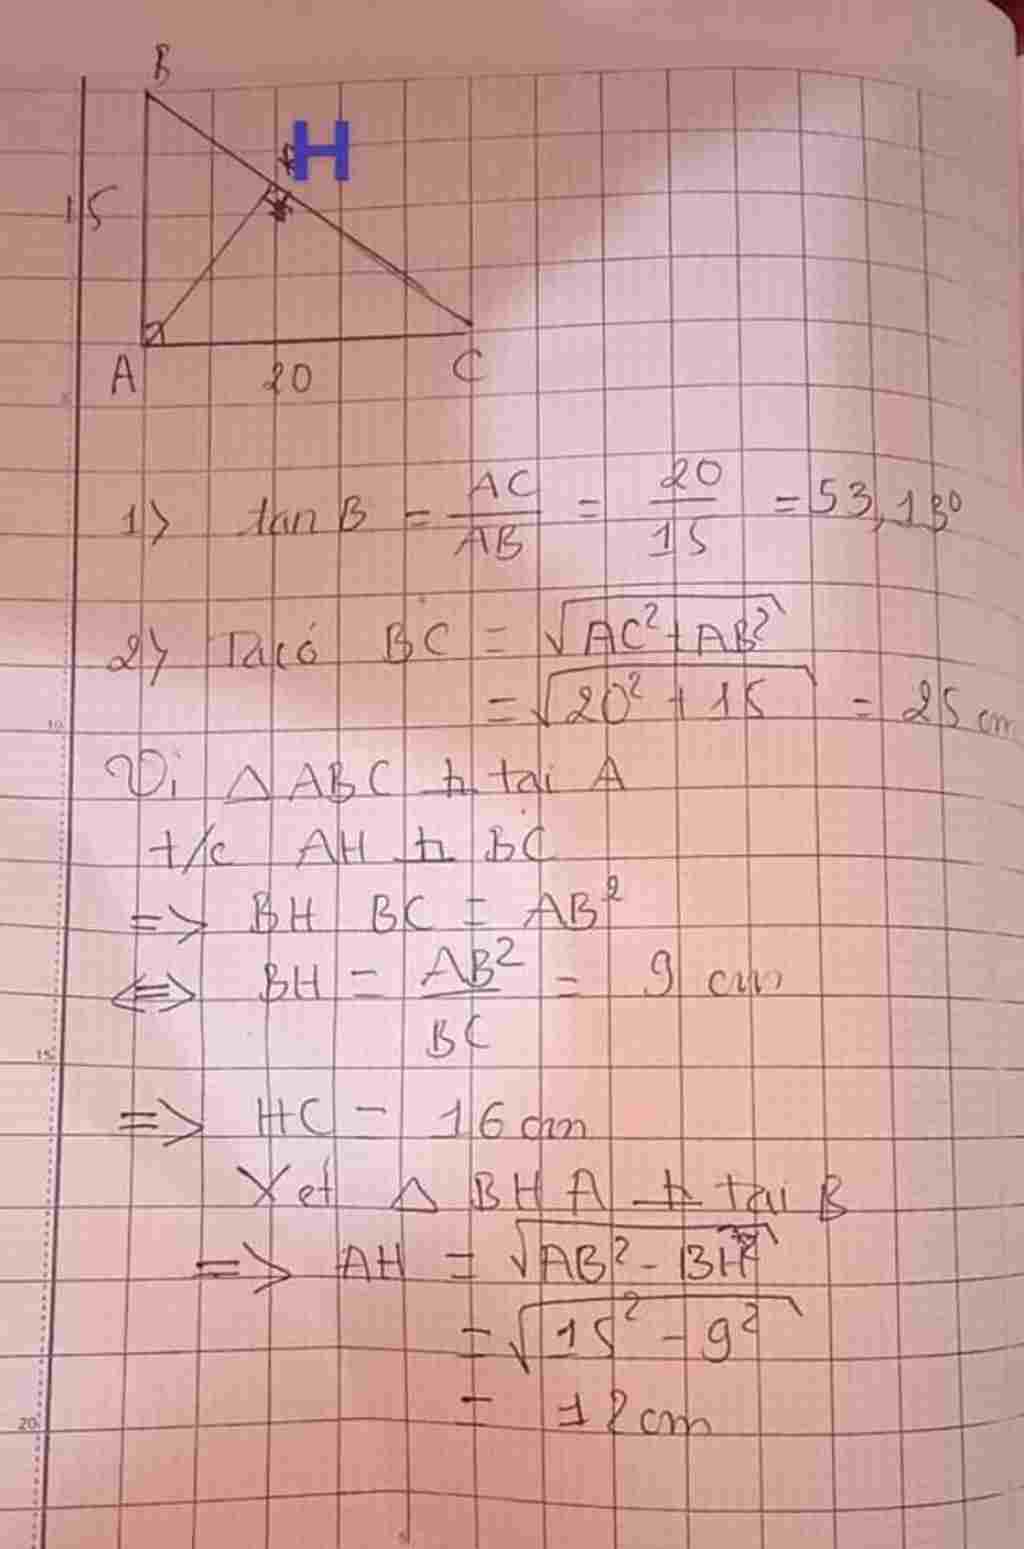 B
H
15
A
20
C
1> tan B = AC/AB = 20/15 = 53,13°
2> Ta có BC = √(AC² + AB²)
= √(20² + 15) = 25 cm
Vì Δ ABC ⊥ tại A
t/c AH ⊥ BC
=> BH BC = AB²
<=> BH = AB²/BC = 9 cm
=> HC = 16 cm
Xet Δ BHA ⊥ tại B
=> AH = √(AB² - BH²)
= √(15² - 9²)
= 12 cm
10
15
20